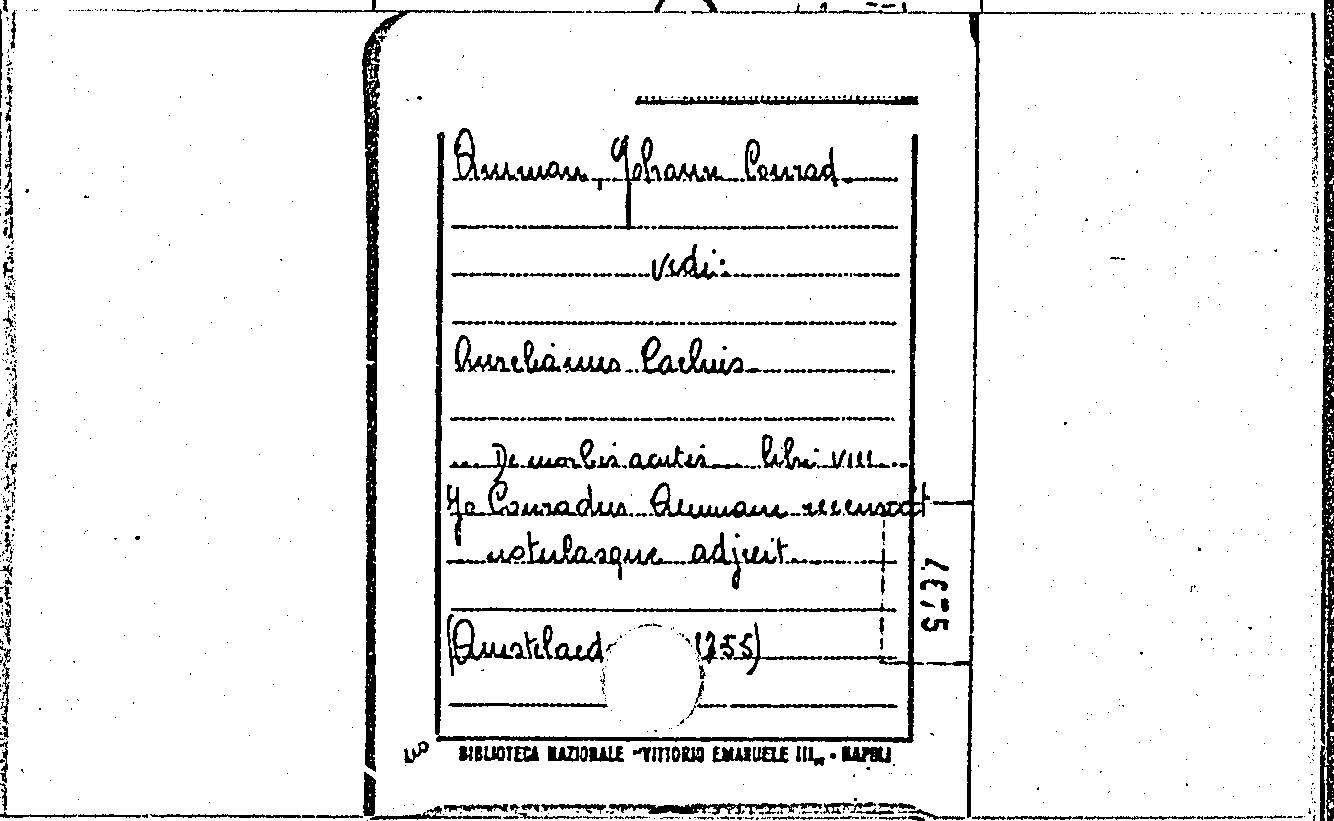 Amman, Johann Conrad
vedi:
Aurelianus Caelius
De morbis acutis libri VIII
Jo Conradus Amman recensuit
notulasque adjecit
(Amstelaed 1755)
BIBLIOTECA NAZIONALE "VITTORIO EMANUELE III„ - NAPOLI